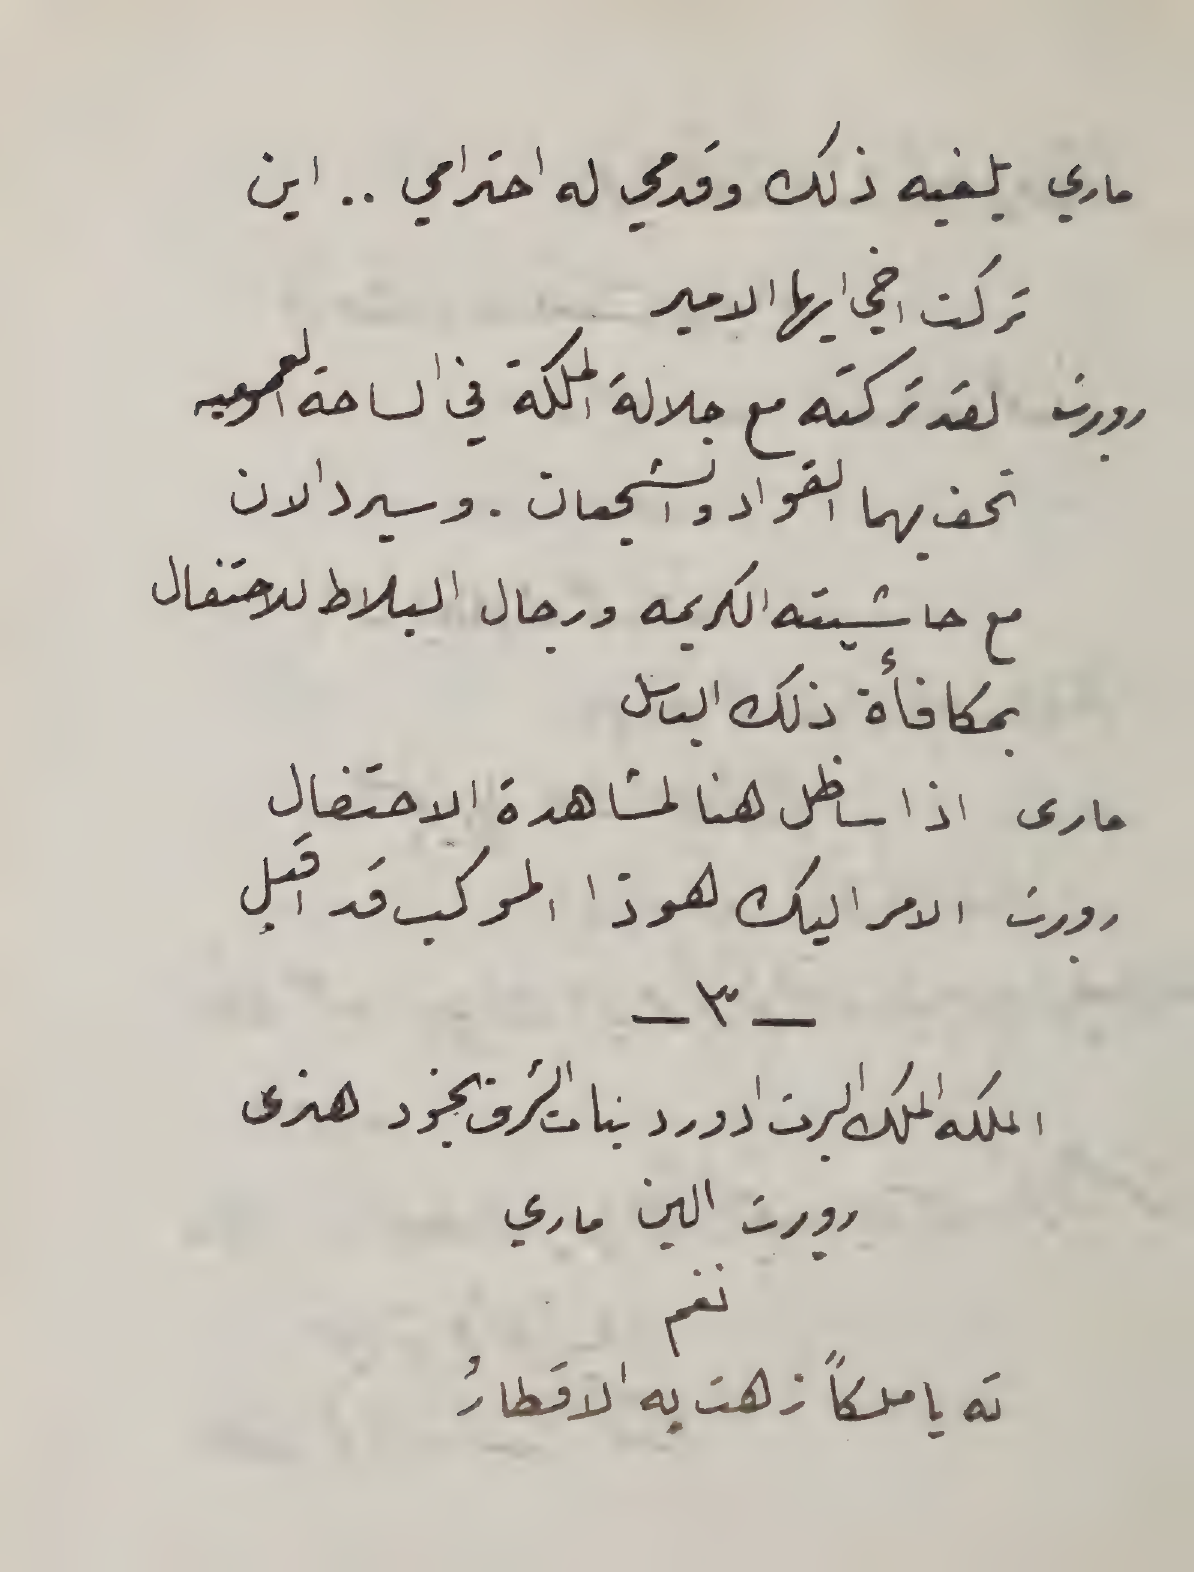 ماري بلغيه ذلك وقدمي له احترامي .. اين
تركت اخي ايها الامير
روبرت لقد تركته مع جلالة الملكة في الساحة العموميه
تحف بهما القواد والشجعان . وسيرد الان
مع حاشيته الكريمه ورجال البلاط للاحتفال
بمكافأة ذلك الباسل
مارى اذا ساظل هنا لمشاهدة الاحتفال
روبرت الامر اليك هوذا الموكب قد اقبل
— ٣ —
الملكه الملك البرت ادورد بنات الشرف جنود هنرى
روبرت الين ماري
نغم
ته يا ملكاً زهت به الاقطارُ